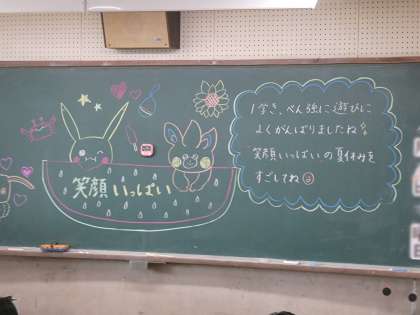 笑顔いっぱい
1学き、べん強に遊びに
よくがんばりましたね
笑顔いっぱいの夏休みを
すごしてね